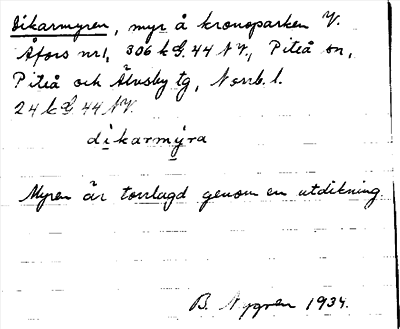 Dikarmyren, myr å kronoparken V.
Åfors nr1, 306 k G. 44 NV., Piteå sn,
Piteå och Älvsby tg, Norrb. l.
24 k G. 44 NV.
dikarmýra
Myren är torrlagd genom en utdikning.
B. Nygren 1934.